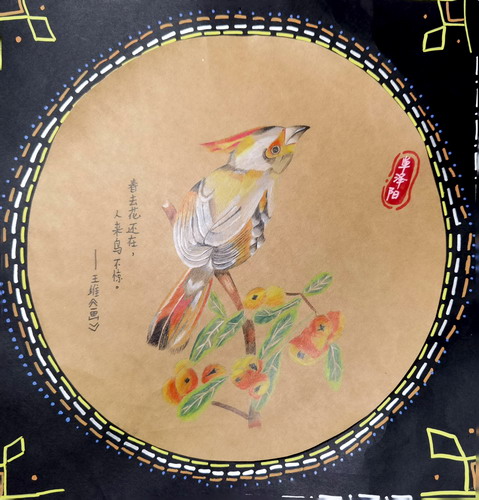 春去花还在，
人来鸟不惊。
——王维《画》
泽阳